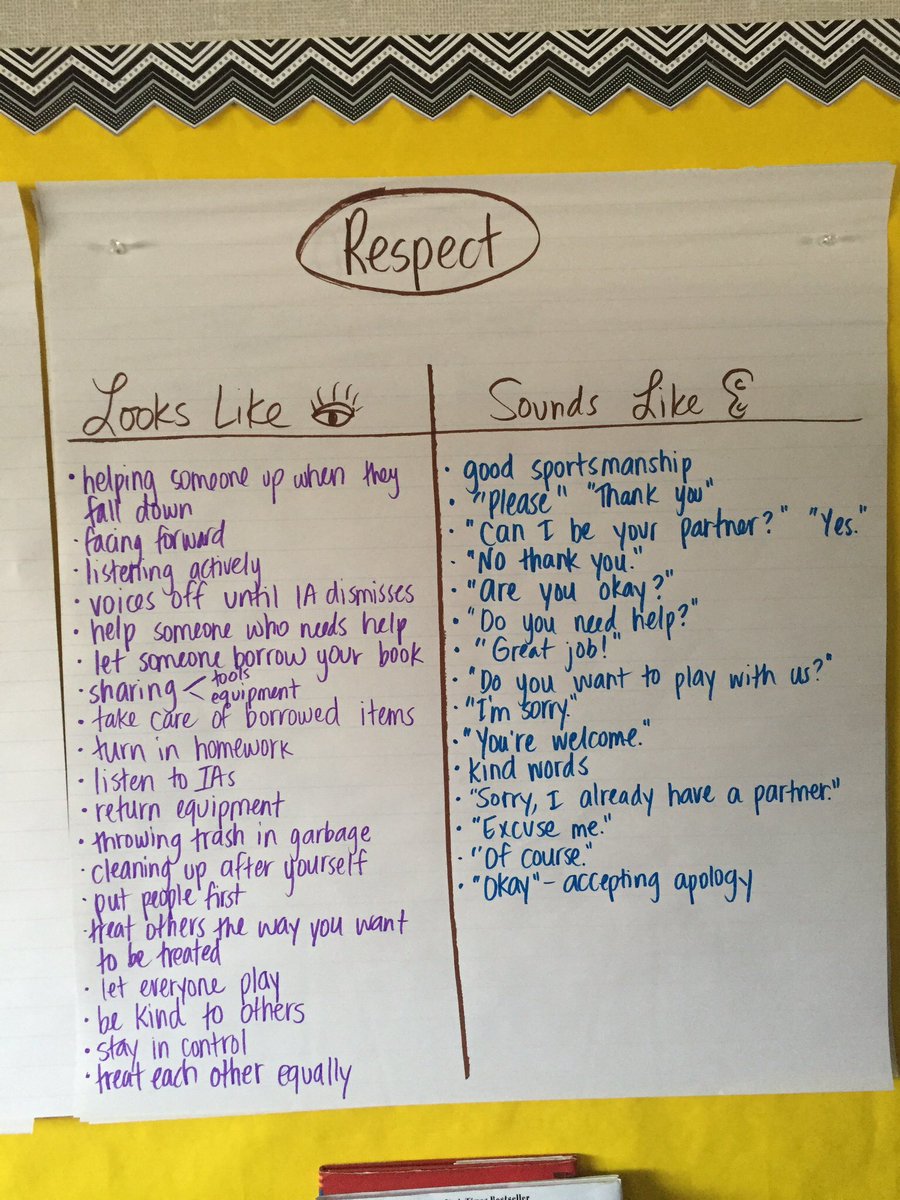 Respect
Looks Like
• helping someone up when they
fall down
• facing forward
• listening actively
• voices off until IA dismisses
• help someone who needs help
• let someone borrow your book
• sharing < tools
equipment
• take care of borrowed items
• turn in homework
• listen to IAs
• return equipment
• throwing trash in garbage
• cleaning up after yourself
• put people first
• treat others the way you want
to be treated
• let everyone play
• be kind to others
• stay in control
• treat each other equally
Sounds Like
• good sportsmanship
• "Please" "Thank you"
• "Can I be your partner?" "Yes."
• "No thank you."
• "Are you okay?"
• "Do you need help?"
• "Great job!"
• "Do you want to play with us?"
• "I'm sorry."
• "You're welcome."
• kind words
• "Sorry, I already have a partner."
• "Excuse me."
• "Of course."
• "Okay" - accepting apology
Times Bestseller